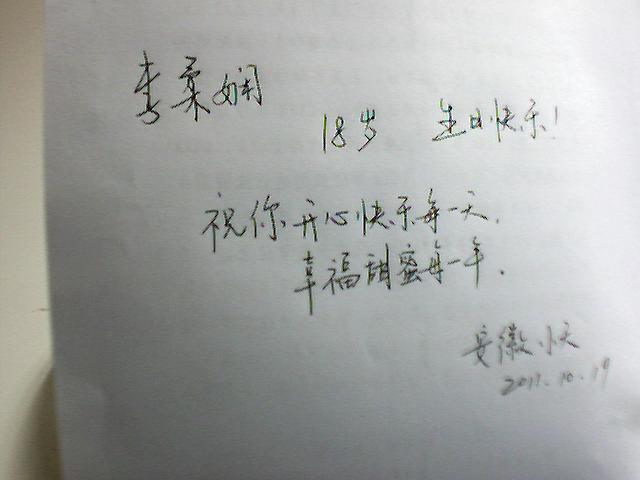 李柔娴
18岁 生日快乐!
祝你开心快乐每一天.
幸福甜蜜每一年.
安徽小天
2011.10.19